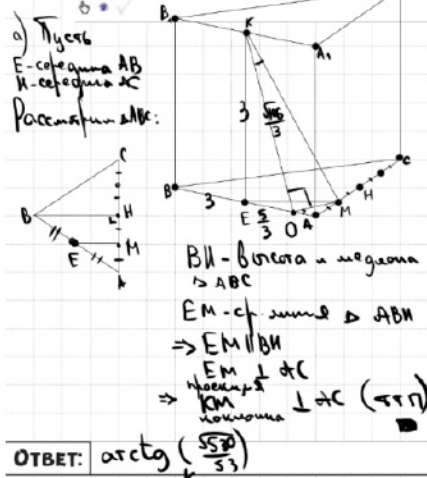 а) Пусть
E-середина AB
H-середина AC
Рассмотрим △ABC:
C
B
H
E
M
A
B₁
K
A₁
3
B
3
E
5/3
O
A
M
H
C
BH - высота и медиана
△ ABC
EM - ср. линия △ ABH
⇒ EM ∥ BH
EM ⊥ AC
проекция
⇒ KM ⊥ AC (ттп)
наклонная
ОТВЕТ: arctg (√530/53)